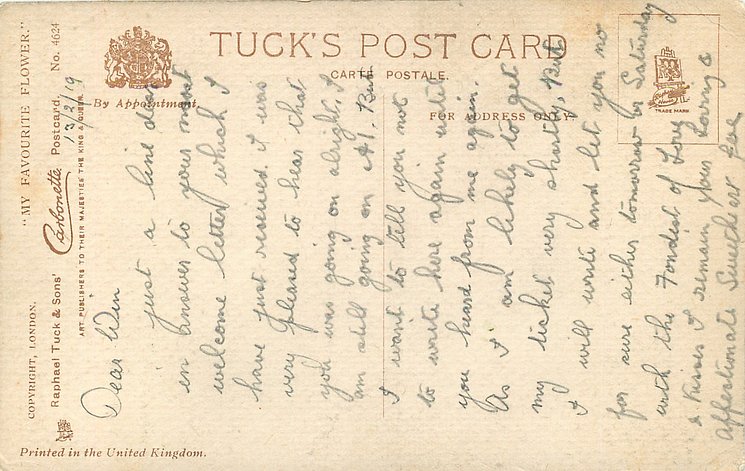 "MY FAVOURITE FLOWER."
COPYRIGHT, LONDON.
Raphael Tuck & Sons' Carbonette Postcard No. 4624
ART PUBLISHERS TO THEIR MAJESTIES THE KING & QUEEN.
By Appointment.
TUCK'S POST CARD
CARTE POSTALE.
FOR ADDRESS ONLY.
TRADE MARK
Printed in the United Kingdom.
13/2/19
Dear Win
just a line dear
in answer to your most
welcome letter which I
have just received. I was
very pleased to hear that
you was going on alright, I
am still going on A1. But
I want to tell you not
to write here again until
you heard from me again.
As I am likely to get
my ticket very shortly, But
I will write and let you no
for sure either tomorrow or Saturday
with the Fondest of Love
& Kisses I remain your Loving &
affectionate Sweetheart